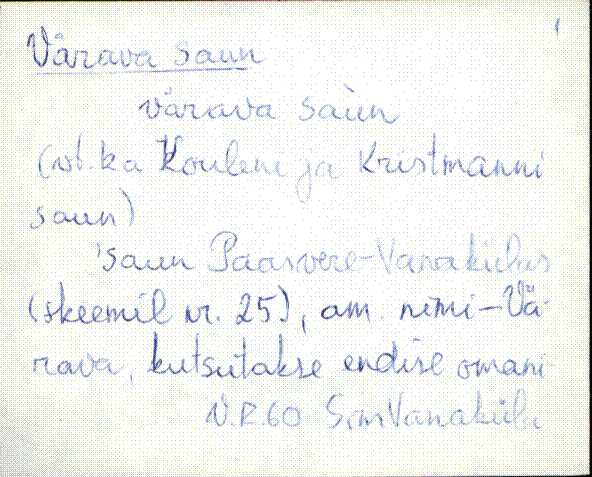 1
Värava saun
värava saùn
(vt. ka Kouleni ja Kristmanni
saun)
'saun Paasvere-Vanakülas
(skeemil nr. 25), am. nimi-Vä-
rava, kutsutakse endise omani-
V.R. 60 Sim Vanaküla